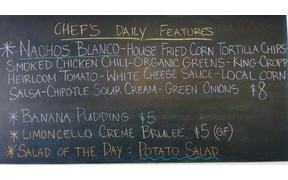 CHEF'S DAILY FEATURES
* NACHOS BLANCO-HOUSE FRIED CORN TORTILLA CHIPS-
SMOKED CHICKEN CHILI-ORGANIC GREENS-KING-CROPP
HEIRLOOM TOMATO-WHITE CHEESE SAUCE-LOCAL CORN
SALSA-CHIPOTLE SOUR CREAM-GREEN ONIONS $8
* BANANA PUDDING $5
* LIMONCELLO CREME BRULEE $5 (GF)
* SALAD OF THE DAY: POTATO SALAD